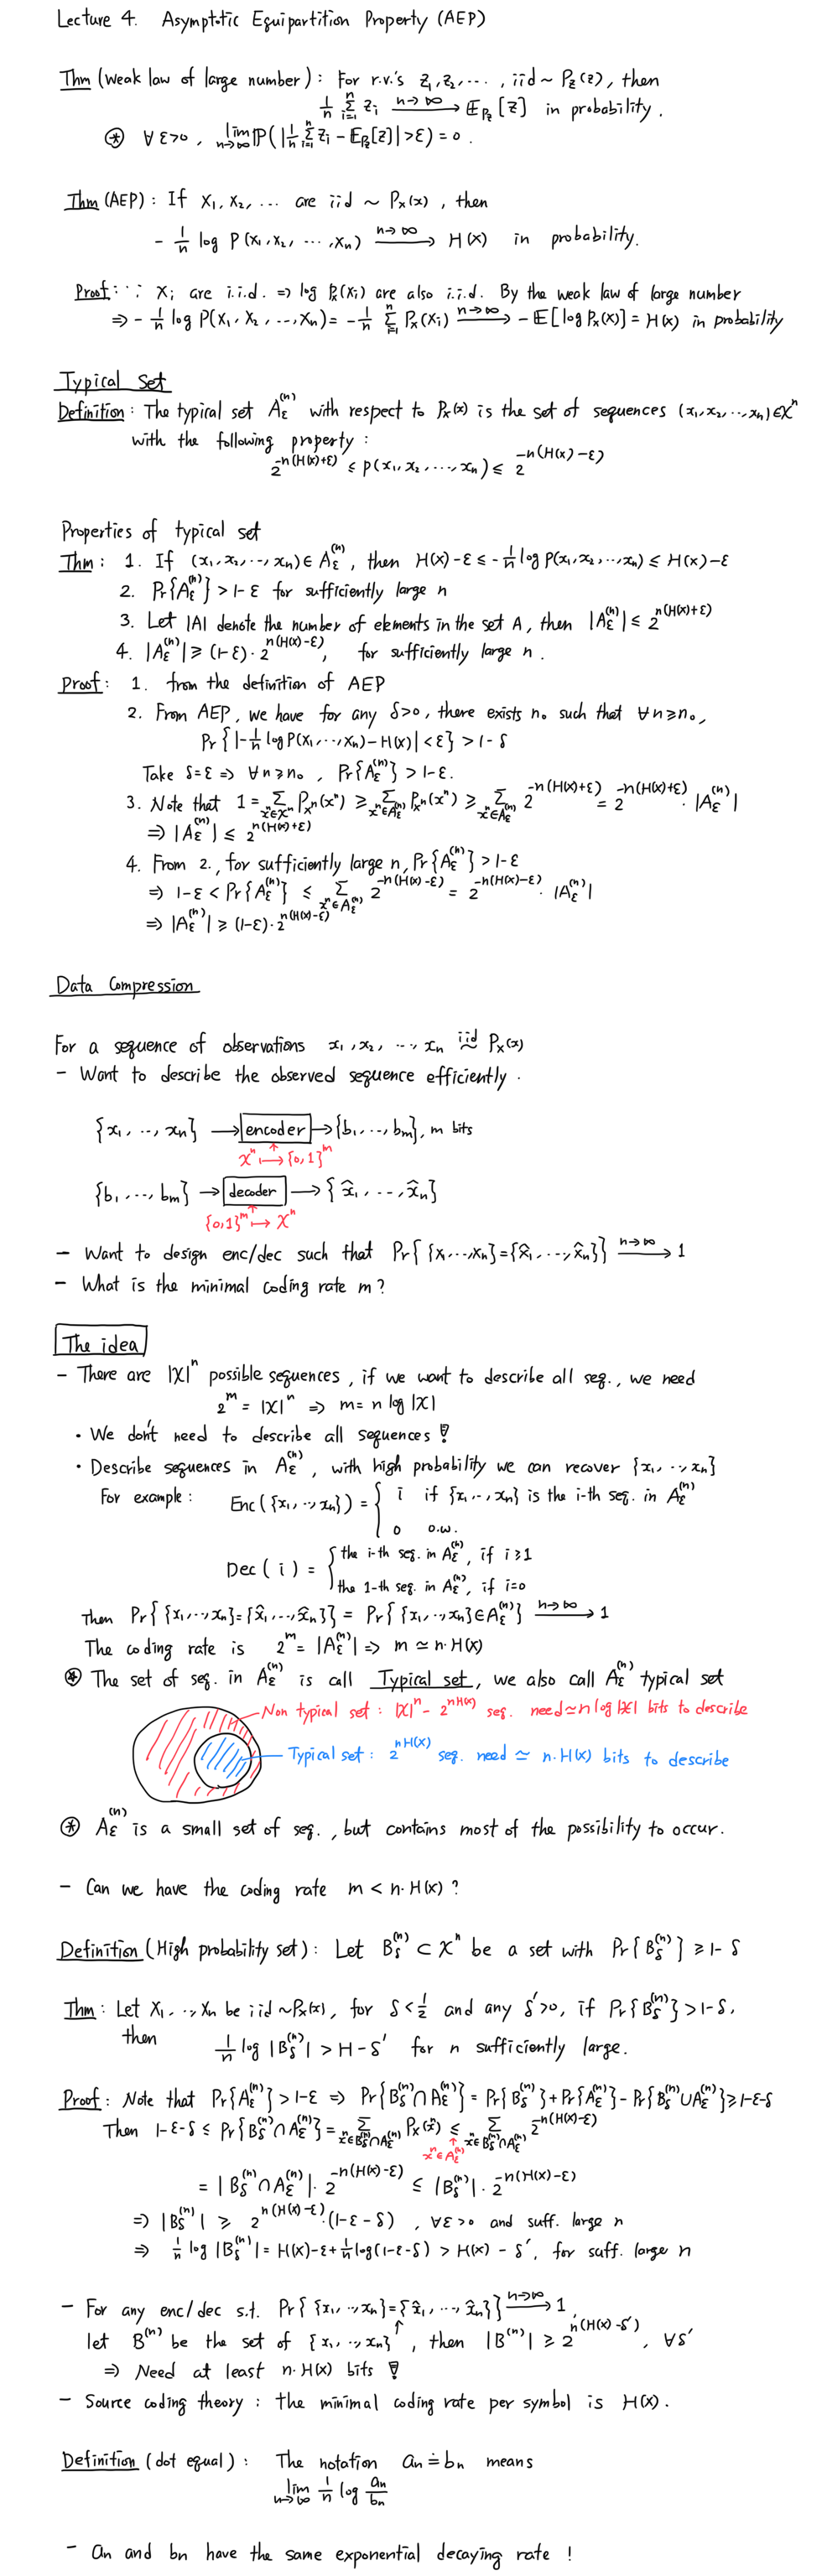 Lecture 4. Asymptotic Equipartition Property (AEP)
Thm (weak law of large number) : For r.v.'s Z₁, Z₂, ⋯, iid ~ P_Z(z), then
1/n Σ_{i=1}^n Z_i →^{n→∞} 𝔼_{P_Z}[Z] in probability.
⊛ ∀ε>0, lim_{n→∞} ℙ(|1/n Σ_{i=1}^n Z_i − 𝔼_{P_Z}[Z]| > ε) = 0.
Thm (AEP) : If X₁, X₂, ... are iid ~ P_X(x), then
− 1/n log P(X₁, X₂, ⋯, Xₙ) →^{n→∞} H(X) in probability.
Proof : ∵ X_i are i.i.d. ⇒ log P_X(X_i) are also i.i.d. By the weak law of large number
⇒ − 1/n log P(X₁, X₂, ..., Xₙ) = − 1/n Σ_{i=1}^n P_X(X_i) →^{n→∞} − 𝔼[log P_X(X)] = H(X) in probability
Typical Set
Definition : The typical set A_ε^{(n)} with respect to P_X(x) is the set of sequences (x₁, x₂, ⋯, xₙ) ∈ 𝒳ⁿ
with the following property :
2^{−n(H(X)+ε)} ≤ p(x₁, x₂, ⋯, xₙ) ≤ 2^{−n(H(X)−ε)}
Properties of typical set
Thm : 1. If (x₁, x₂, ⋯, xₙ) ∈ A_ε^{(n)}, then H(X)−ε ≤ − 1/n log P(x₁, x₂, ⋯, xₙ) ≤ H(X)−ε
2. Pr{A_ε^{(n)}} > 1−ε for sufficiently large n
3. Let |A| denote the number of elements in the set A, then |A_ε^{(n)}| ≤ 2^{n(H(X)+ε)}
4. |A_ε^{(n)}| ≥ (1−ε)·2^{n(H(X)−ε)}, for sufficiently large n.
Proof : 1. from the definition of AEP
2. From AEP, we have for any δ>0, there exists n₀ such that ∀n≥n₀,
Pr{|− 1/n log P(X₁, ⋯, Xₙ) − H(X)| < ε} > 1−δ
Take δ=ε ⇒ ∀n≥n₀, Pr{A_ε^{(n)}} > 1−ε.
3. Note that 1 = Σ_{xⁿ∈𝒳ⁿ} P_{Xⁿ}(xⁿ) ≥ Σ_{xⁿ∈A_ε^{(n)}} P_{Xⁿ}(xⁿ) ≥ Σ_{xⁿ∈A_ε^{(n)}} 2^{−n(H(X)+ε)} = 2^{−n(H(X)+ε)} · |A_ε^{(n)}|
⇒ |A_ε^{(n)}| ≤ 2^{n(H(X)+ε)}
4. From 2., for sufficiently large n, Pr{A_ε^{(n)}} > 1−ε
⇒ 1−ε < Pr{A_ε^{(n)}} ≤ Σ_{xⁿ∈A_ε^{(n)}} 2^{−n(H(X)−ε)} = 2^{−n(H(X)−ε)} · |A_ε^{(n)}|
⇒ |A_ε^{(n)}| ≥ (1−ε)·2^{n(H(X)−ε)}
Data Compression
For a sequence of observations x₁, x₂, ⋯, xₙ ~^{iid} P_X(x)
− Want to describe the observed sequence efficiently.
{x₁, ⋯, xₙ} → encoder → {b₁, ⋯, bₘ}, m bits
𝒳ⁿ ↦ {0,1}ᵐ
{b₁, ⋯, bₘ} → decoder → {x̂₁, ⋯, x̂ₙ}
{0,1}ᵐ ↦ 𝒳ⁿ
− Want to design enc/dec such that Pr{{x₁, ⋯, xₙ} = {x̂₁, ⋯, x̂ₙ}} →^{n→∞} 1
− What is the minimal coding rate m?
The idea
− There are |𝒳|ⁿ possible sequences, if we want to describe all seq., we need
2ᵐ = |𝒳|ⁿ ⇒ m = n log |𝒳|
· We don't need to describe all sequences !
· Describe sequences in A_ε^{(n)}, with high probability we can recover {x₁, ⋯, xₙ}
For example : Enc({x₁, ⋯, xₙ}) = { i if {x₁, ⋯, xₙ} is the i-th seq. in A_ε^{(n)}
0 o.w.
Dec(i) = { the i-th seq. in A_ε^{(n)}, if i≥1
the 1-th seq. in A_ε^{(n)}, if i=0
Then Pr{{x₁, ⋯, xₙ} = {x̂₁, ⋯, x̂ₙ}} = Pr{{x₁, ⋯, xₙ} ∈ A_ε^{(n)}} →^{n→∞} 1
The coding rate is 2ᵐ = |A_ε^{(n)}| ⇒ m ≃ n·H(X)
⊛ The set of seq. in A_ε^{(n)} is call Typical set, we also call A_ε^{(n)} typical set
Non typical set : |𝒳|ⁿ − 2^{nH(X)} seq. need ≃ n log |𝒳| bits to describe
Typical set : 2^{nH(X)} seq. need ≃ n·H(X) bits to describe
⊛ A_ε^{(n)} is a small set of seq., but contains most of the possibility to occur.
− Can we have the coding rate m < n·H(X) ?
Definition (High probability set) : Let B_δ^{(n)} ⊂ 𝒳ⁿ be a set with Pr{B_δ^{(n)}} ≥ 1−δ
Thm : Let X₁, ⋯, Xₙ be iid ~ P_X(x), for δ < 1/2 and any δ'>0, if Pr{B_δ^{(n)}} > 1−δ,
then 1/n log |B_δ^{(n)}| > H − δ' for n sufficiently large.
Proof : Note that Pr{A_ε^{(n)}} > 1−ε ⇒ Pr{B_δ^{(n)} ∩ A_ε^{(n)}} = Pr{B_δ^{(n)}} + Pr{A_ε^{(n)}} − Pr{B_δ^{(n)} ∪ A_ε^{(n)}} ≥ 1−ε−δ
Then 1−ε−δ ≤ Pr{B_δ^{(n)} ∩ A_ε^{(n)}} = Σ_{xⁿ∈B_δ^{(n)}∩A_ε^{(n)}} P_X(xⁿ) ≤ Σ_{xⁿ∈B_δ^{(n)}∩A_ε^{(n)}} 2^{−n(H(X)−ε)}
xⁿ∈A_ε^{(n)}
= |B_δ^{(n)} ∩ A_ε^{(n)}| · 2^{−n(H(X)−ε)} ≤ |B_δ^{(n)}| · 2^{−n(H(X)−ε)}
⇒ |B_δ^{(n)}| ≥ 2^{n(H(X)−ε)}·(1−ε−δ), ∀ε>0 and suff. large n
⇒ 1/n log |B_δ^{(n)}| = H(X)−ε + 1/n log(1−ε−δ) > H(X) − δ', for suff. large n
− For any enc/dec s.t. Pr{{x₁, ⋯, xₙ} = {x̂₁, ⋯, x̂ₙ}} →^{n→∞} 1,
let B^{(n)} be the set of {x₁, ⋯, xₙ} ↑, then |B^{(n)}| ≥ 2^{n(H(X)−δ')}, ∀δ'
⇒ Need at least n·H(X) bits !
− Source coding theory : the minimal coding rate per symbol is H(X).
Definition (dot equal) : The notation aₙ ≐ bₙ means
lim_{n→∞} 1/n log aₙ/bₙ
− aₙ and bₙ have the same exponential decaying rate !